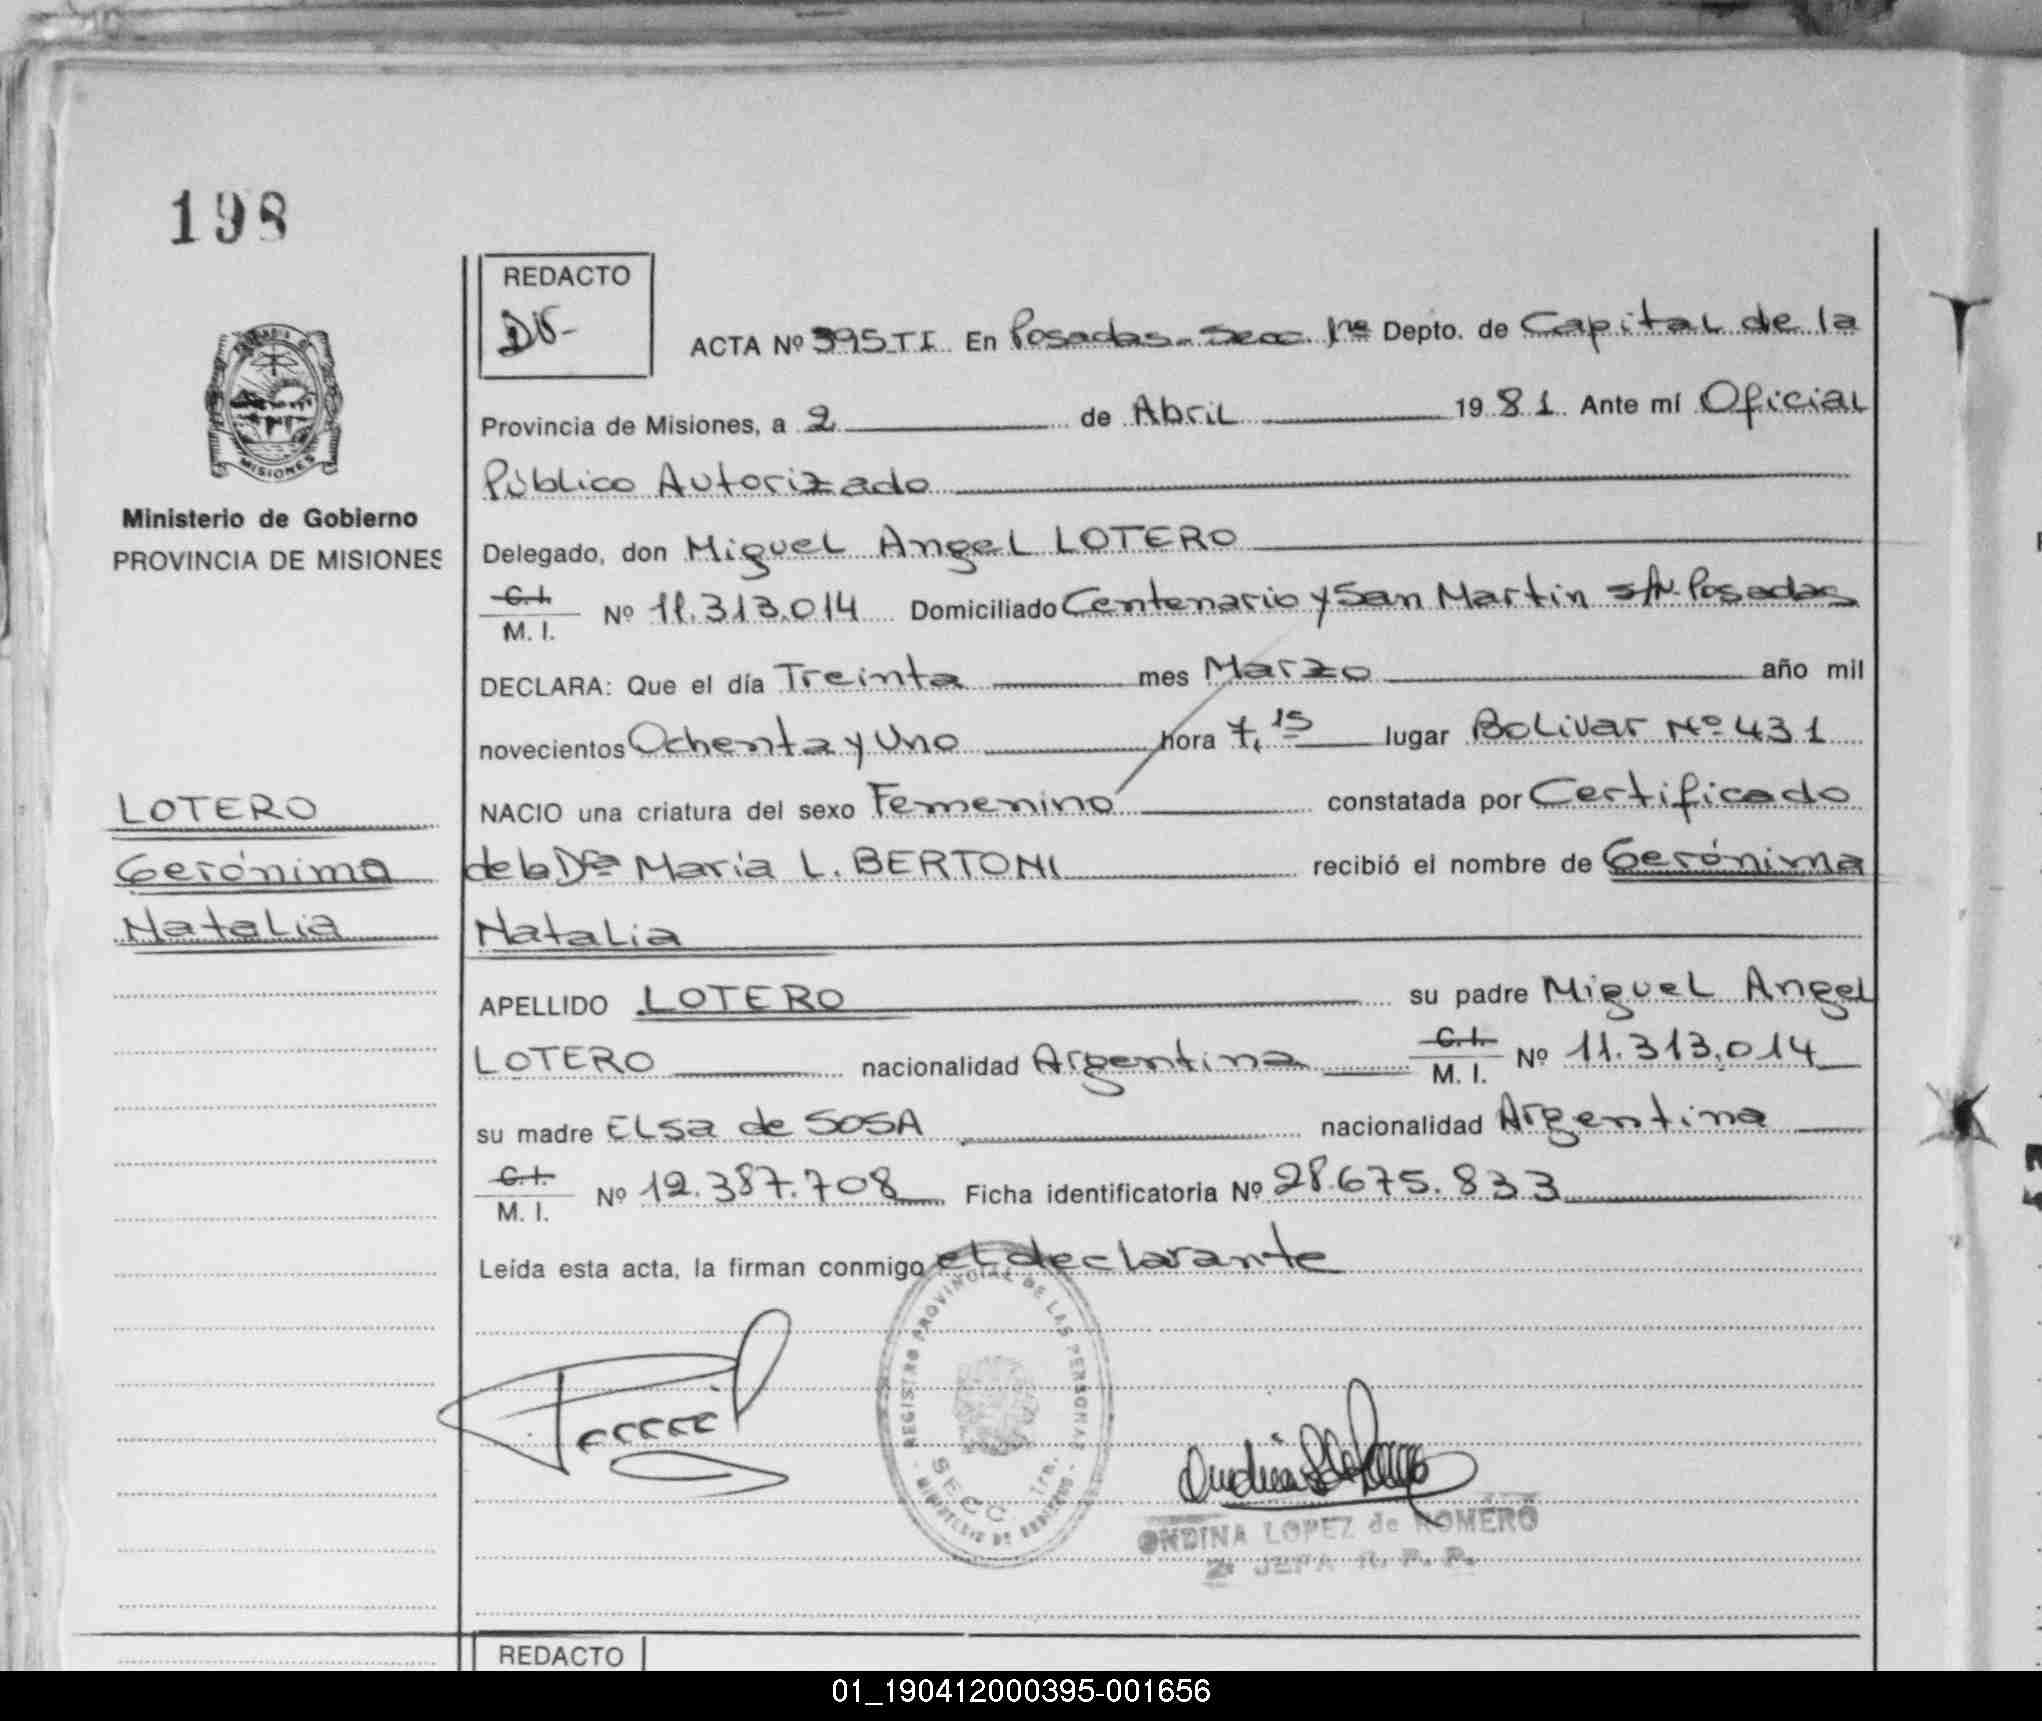 198
REDACTO
ACTA Nº 395 TI En Posadas - Secc. 1ra Depto. de Capital de la
Provincia de Misiones, a 2 de Abril 1981 Ante mí Oficial
Público Autorizado
MISIONES
Ministerio de Gobierno
PROVINCIA DE MISIONES
Delegado, don Miguel Angel LOTERO
C.I.
M. I. Nº 11.313.014 Domiciliado Centenario y San Martin s/N. Posadas
DECLARA: Que el día Treinta mes Marzo año mil
novecientos Ochenta y Uno hora 7,15 lugar Bolivar Nº 431
NACIO una criatura del sexo Femenino constatada por Certificado
de la Dra María L. BERTONI recibió el nombre de Gerónima
Natalia
LOTERO
Gerónima
Natalia
APELLIDO LOTERO su padre Miguel Angel
LOTERO nacionalidad Argentina C.I.
M. I. Nº 11.313.014
su madre ELsa de SOSA nacionalidad Argentina
C.I.
M. I. Nº 12.387.708 Ficha identificatoria Nº 28.675.833
Leída esta acta, la firman conmigo el declarante
REGISTRO PROVINCIAL DE LAS PERSONAS
SECC. 1ra.
MINISTERIO DE GOBIERNO
ONDINA LOPEZ de ROMERO
2º JEFA R. P. P.
REDACTO
01_190412000395-001656